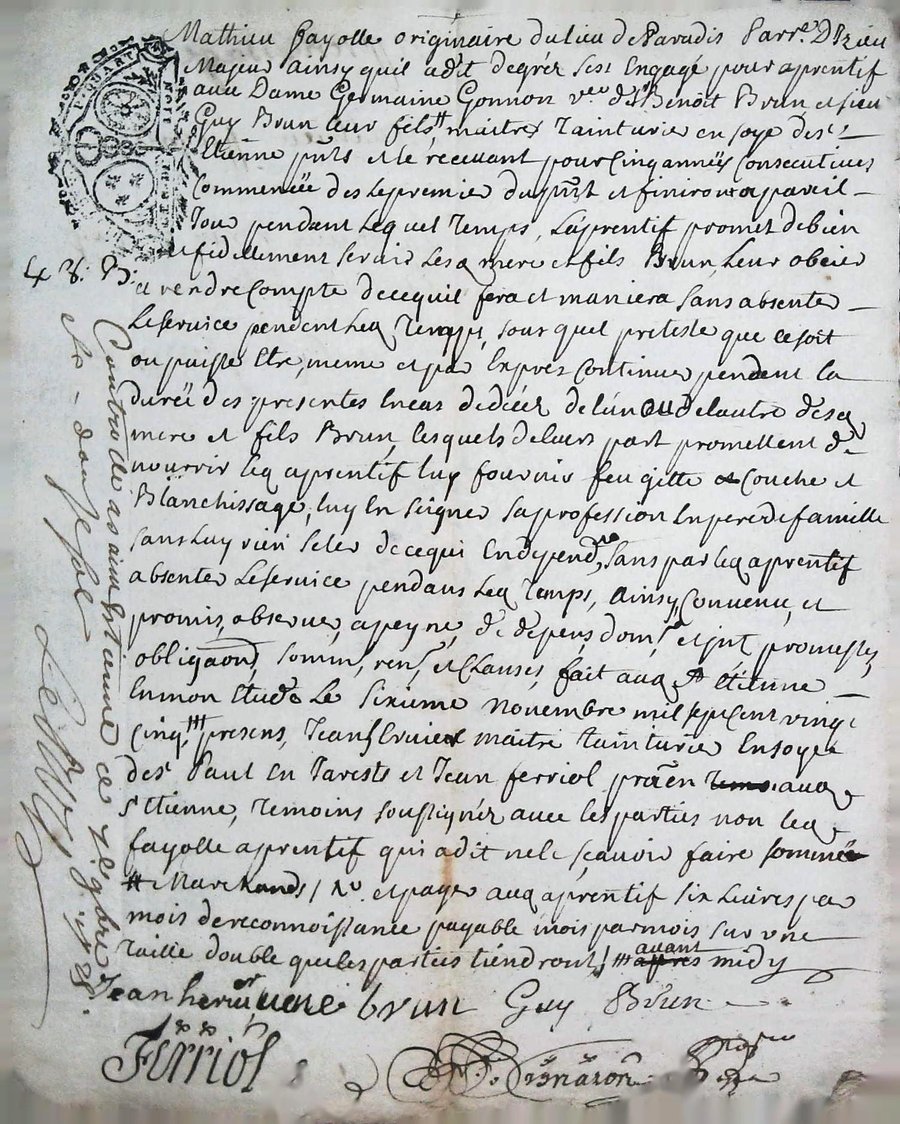 Mathieu fayolle originaire du lieu de Paradis Parr.e D'Izieu
Majeur ainsy quil a dit de gréz s'est Engagé pour aprentif
aux Dame Germaine Gonnon v.ve de S.r Benoit Brun et sieur
Guy Brun leur fils # maitres tainturier en soye de S.t
Etienne pnts et le recevant pour cinq années Consecutives
Commencée des le premie du pnt et finiront a pareil
Jour pendant lequel temps, L'aprentif promet de bien
et fidellement servir lesq mere et fils Brun, leur obeir
et rendre Compte de ce quil fera et maniera sans absenter
Le service pendent leq temps, sous quel preteste que ce soit
ou puisse Etre, meme et par Exprés Continuer pendent la
durée des presentes En cas de décéz de l'un ou de l'autre desq
mere et fils Brun, lesquels de leurs part promettent de
nourrir leq aprentif luy fournir feu gitte et Couche et
Blanchissage, luy En seigner sa profession En pere de famille
sans luy rien celer de ce qui En depend, sans par leq aprentif
absenter Le service pendant leq temps, ainsy Convenu, et
promis, observer, a peyne de depens, dom, et int promesses,
obligaons, soumin, ren, et Clauses, fait aud St Etienne
En mon Etude Le sixieme novembre mil sept cent vingt
cinq, ### presens, Jean maitre tainturier En soye
de St Paul En Jarests et Jean ferriol praen aud
St Etienne, temoins soussignéz avec les parties non leq
fayolle aprentif qui a dit ne le sçavoir faire sommé
# Marchands / et payer audt aprentif six Livres par
mois de reconnoissance payable mois par mois sur une
taille double que les parties tiendront / ### avant
apres midy
Jean brun Guy Brun
Ferriol
QUART
4 8. B.
Controllé a St Etienne ce